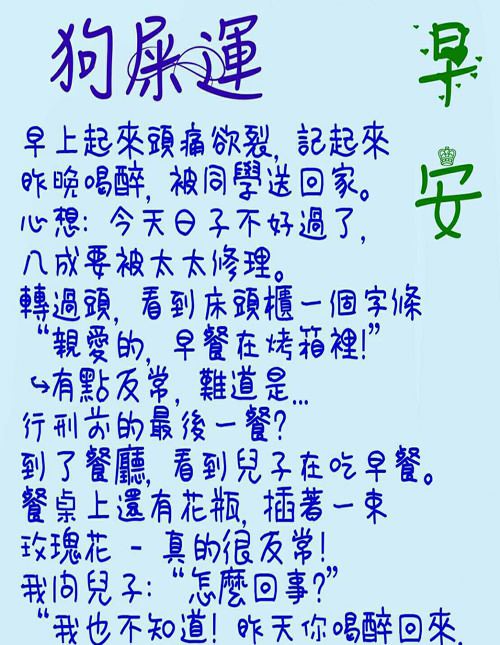 狗屎運
早
安
早上起來頭痛欲裂, 記起來
昨晚喝醉, 被同學送回家。
心想: 今天日子不好過了,
八成要被太太修理。
轉過頭, 看到床頭櫃一個字條
“親愛的, 早餐在烤箱裡!”
↪有點反常, 難道是...
行刑前的最後一餐?
到了餐廳, 看到兒子在吃早餐。
餐桌上還有花瓶, 插著一束
玫瑰花 - 真的很反常!
我問兒子: “怎麼回事?”
“我也不知道! 昨天你喝醉回來,